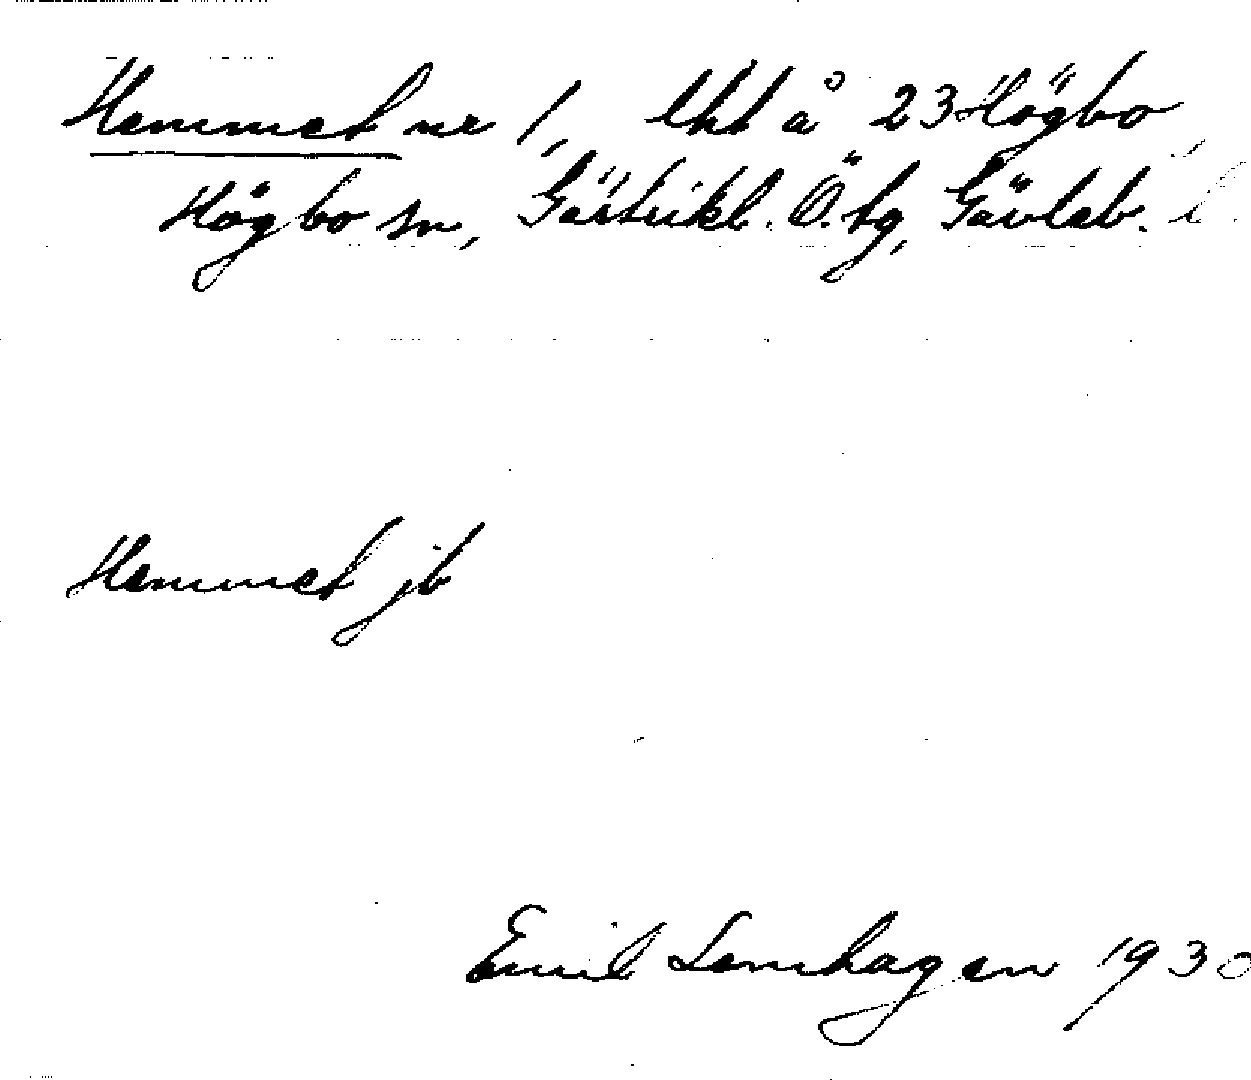 Hemmet nr 1, lht å 23 Högbo,
Högbo sn, Gästrikl. Ö. tg, Gävleb. l.
Hemmet jb
Emil Lenhagen 1930